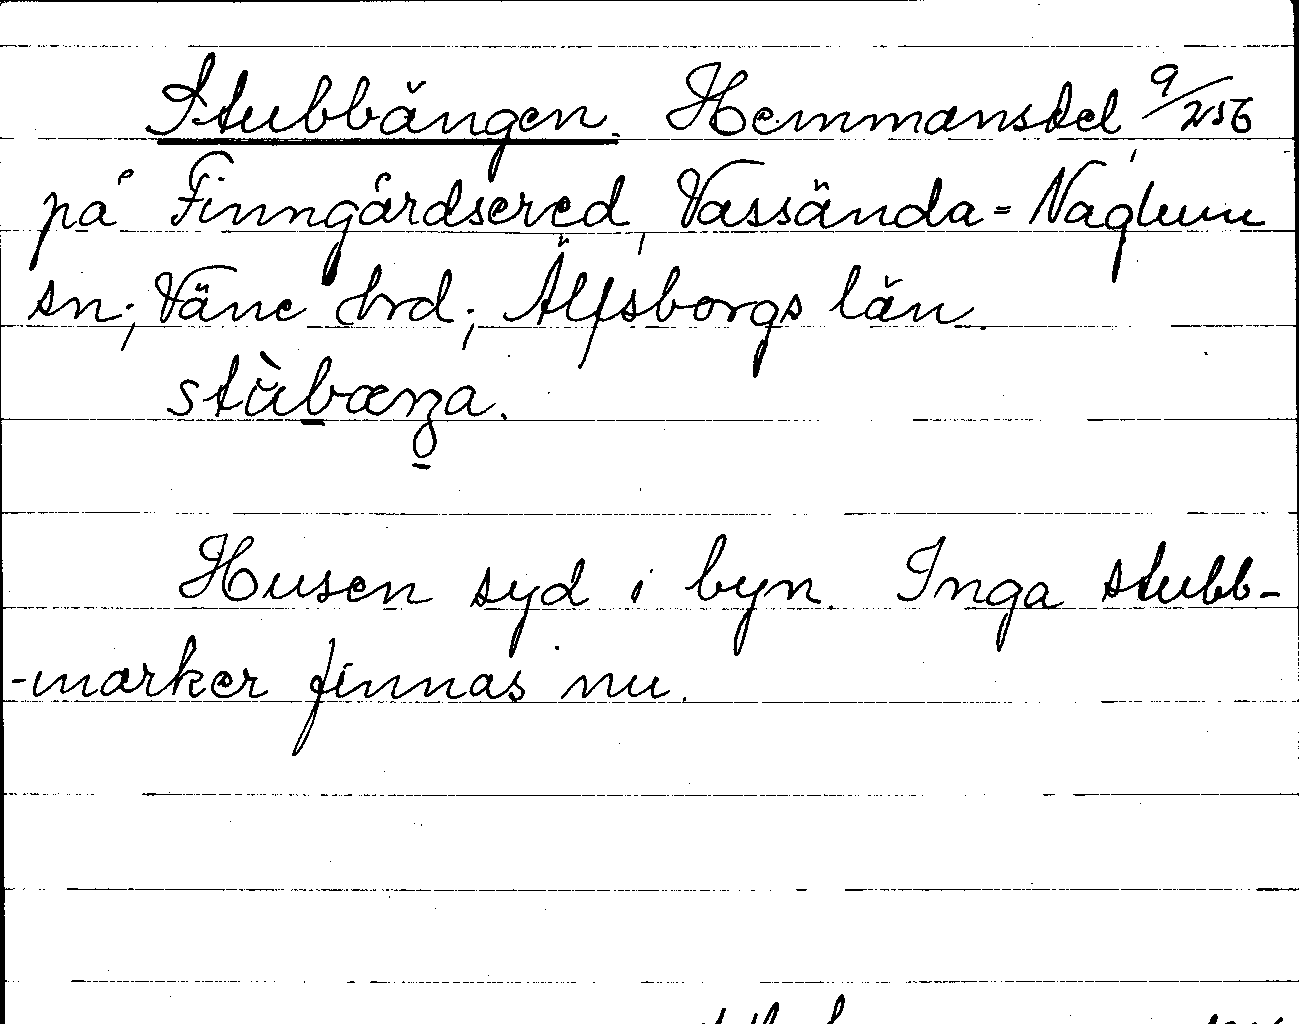 Stubbängen. Hemmansdel 9/256
på Finngårdsered, Vassända-Naglum
sn; Väne hrd; Älfsborgs län.
stùbæŋa.
Husen syd i byn. Inga stubb-
-marker finnas nu.